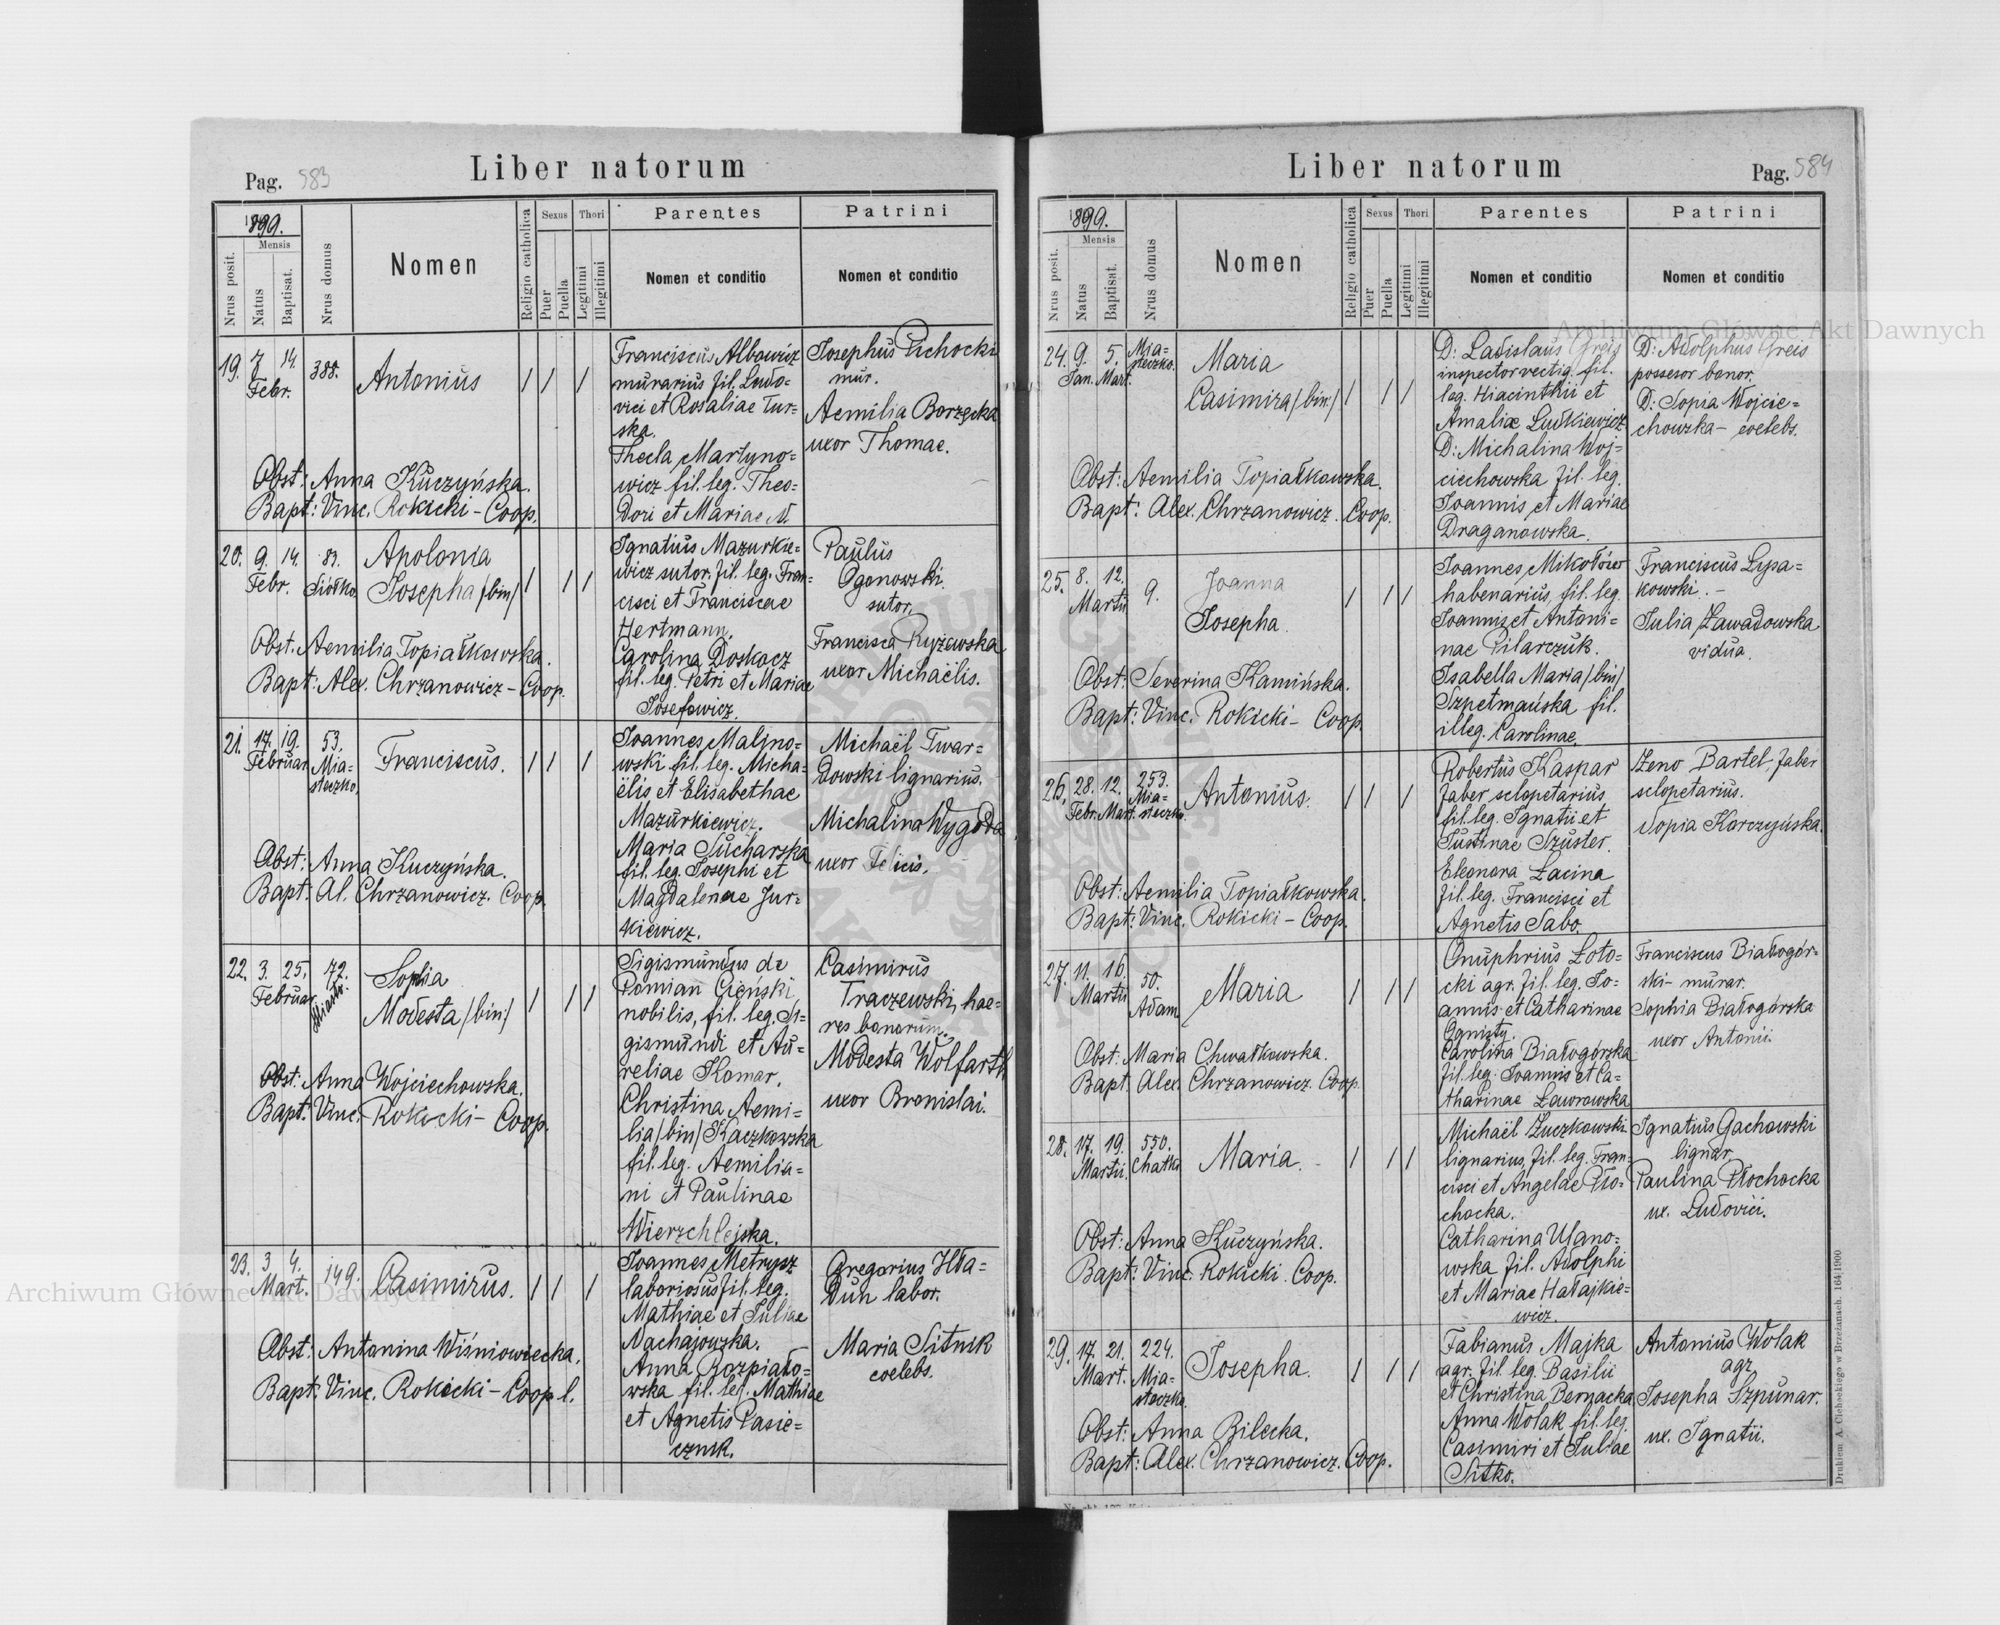 Liber natorum
Pag. 583
1899.
Nrus posit.
Mensis
Natus
Baptisat.
Nrus domus
Nomen
Religio catholica
Sexus
Puer
Puella
Thori
Legitimi
Illegitimi
Parentes
Nomen et conditio
Patrini
Nomen et conditio
19. 7 14. Febr. 388. Antonius / / /
Franciscus Albowicz
murarius fil. Ludo=
vici et Rosaliae Tur=
ska.
Thecla Martyno=
wicz fil. leg. Theo=
dori et Mariae N.
Josephus Cichocki
mur.
Aemilia Borzęcka
uxor Thomae.
Obst: Anna Kuczyńska.
Bapt: Vinc. Rokicki - Coop.
20. 9. 14. Febr. 83. Siółko. Apolonia
Josepha /bin/ / / /
Ignatius Mazurkie=
wicz sutor. fil. leg. Fran=
cisci et Franciscae
Hertmann.
Carolina Doskocz
fil. leg. Petri et Mariae
Josefowicz.
Paulus
Ogonowski
sutor.
Francisca Ryżewska
uxor Michaëlis.
Obst. Aemilia Topiałkowska.
Bapt: Alex. Chrzanowicz - Coop.
21. 17. 19. Februar. 53. Mia=
steczko. Franciscus. / / /
Joannes Malino=
wski fil. leg. Micha=
ëlis et Elisabethae
Mazurkiewicz.
Maria Sucharska
fil. leg. Josephi et
Magdalenae Jur=
kiewicz.
Michaël Twar=
dowski lignarius.
Michalina Wygoda
uxor Felicis.
Obst: Anna Kuczyńska.
Bapt: Al. Chrzanowicz. Coop.
22. 3. 25. Februar. 72. Miast. Sophia
Modesta /bin/ / / /
Sigismundus de
Pomian Cieński
nobilis, fil. leg. Si=
gismundi et Au=
reliae Komar.
Christina Aemi=
lia /bin/ Kaczkowska
fil. leg. Aemilia=
ni et Paulinae
Wierzchlejska.
Casimirus
Traczewski, hae=
res bonorum.
Modesta Wolfarth
uxor Bronislai.
Obst: Anna Wojciechowska.
Bapt: Vinc. Rokicki - Coop.
23. 3. 4. Mart. 149. Casimirus. / / /
Joannes Metrysz
laboriosus fil. leg.
Mathiae et Juliae
Nachajowska.
Anna Rozpiało=
wska fil. leg. Mathiae
et Agnetis Pasie=
cznik.
Gregorius Hła=
duń labor.
Maria Sitnik
coelebs.
Obst: Antonina Wiśniowiecka.
Bapt: Vinc. Rokicki - Coop. l.
Liber natorum
Pag. 584
1899.
Nrus posit.
Mensis
Natus
Baptisat.
Nrus domus
Nomen
Religio catholica
Sexus
Puer
Puella
Thori
Legitimi
Illegitimi
Parentes
Nomen et conditio
Patrini
Nomen et conditio
24. 9. 5. Jan. Mart. Mia=
steczko. Maria
Casimira /bin/ / / /
D: Ladislaus Greis
inspector vectig. fil.
leg. Hiacinthii et
Amaliae Ludkiewicz
D: Michalina Woj=
ciechowska fil. leg.
Joannis et Mariae
Draganowska.
D: Adolphus Greis
possesor bonor.
D: Sopia Wojcie=
chowska - coelebs.
Obst: Aemilia Topiałkowska.
Bapt: Alex. Chrzanowicz. Coop.
25. 8. 12. Martii 9. Joanna
Josepha. / / /
Joannes Mikołów
habenarius, fil. leg.
Joannis et Antoni=
nae Pilarczuk.
Isabella Maria /bin/
Szpetmańska fil.
illeg. Carolinae.
Franciscus Lysa=
kowski. -
Julia Zawadowska
vidua.
Obst: Severina Kamińska.
Bapt: Vinc. Rokicki - Coop.
26. 28. 12. Febr. Mart. 253. Mia=
steczko. Antonius. / / /
Robertus Kaspar
faber sclopetarius
fil. leg. Ignatii et
Justinae Szuster.
Eleonora Łacina
fil. leg. Francisci et
Agnetis Sabo.
Zeno Bartel faber
sclopetarius.
Sopia Korczyńska.
Obst: Aemilia Topiałkowska.
Bapt: Vinc. Rokicki - Coop.
27. 11. 16. Martii 50. Adam Maria / / /
Onuphrius Łoto=
cki agr. fil. leg. Jo=
annis et Catharinae
Ognisty.
Carolina Białogórska
fil. leg. Joannis et Ca=
tharinae Ławrowska
Franciscus Białogór=
ski - murar.
Sophia Białogórska
uxor Antonii.
Obst: Maria Chwałkowska.
Bapt. Alex. Chrzanowicz. Coop.
28. 17. 19. Martii. 550. Chatki Maria. / / /
Michaël Zuczkowski
lignarius, fil. leg. Fran=
cisci et Angelae Pło=
chocka.
Catharina Ulano=
wska fil. Adolphi
et Mariae Hałajkie=
wicz.
Ignatius Gachowski
lignar.
Paulina Płochocka
ux. Ludovici.
Obst: Anna Kuczyńska.
Bapt: Vinc. Rokicki. Coop.
29. 17. 21. Mart. 224. Mia=
steczko. Josepha. / / /
Fabianus Majka
agr. fil. leg. Basilii
et Christina Bernacka
Anna Wolak fil. leg.
Casimiri et Juliae
Sitko.
Antonius Wolak
agr.
Josepha Szpunar.
ux. Ignatii.
Obst: Anna Bilecka.
Bapt: Alex. Chrzanowicz. Coop.
Drukiem A. Cichockiego w Brzeżanach. 164|1900
Archiwum Główne Akt Dawnych
Archiwum Główne Akt Dawnych